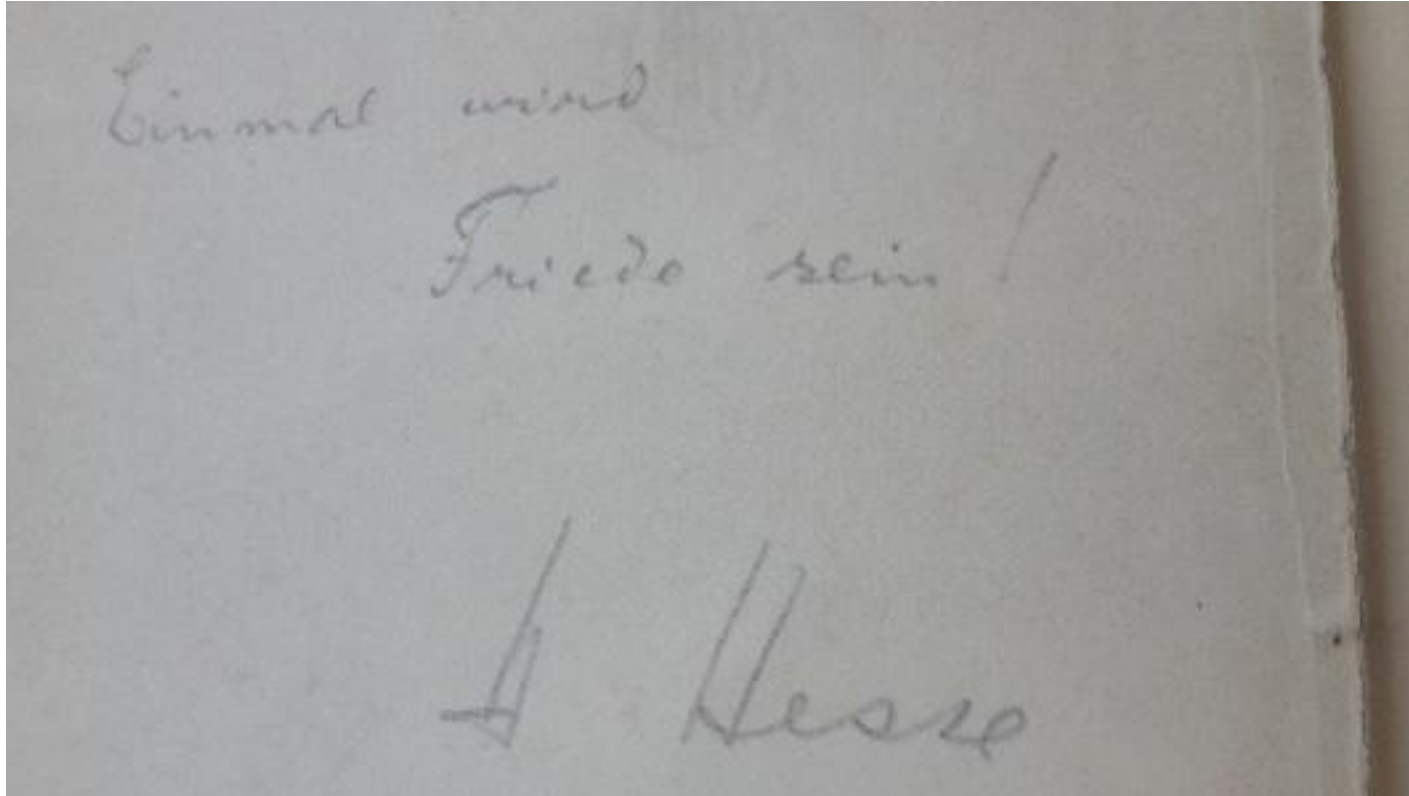 Einmal wird
Friede sein!
H Hesse